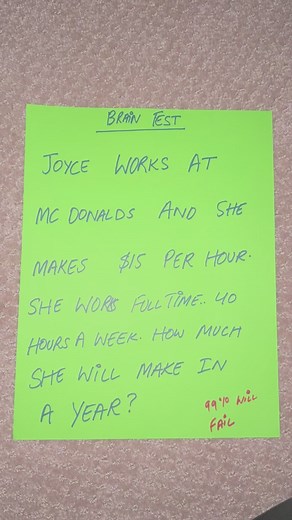 BRAIN TEST
JOYCE WORKS AT
MC DONALDS AND SHE
MAKES $15 PER HOUR.
SHE WORKS FULL TIME.. 40
HOURS A WEEK. HOW MUCH
SHE WILL MAKE IN
A YEAR?
99% WILL
FAIL